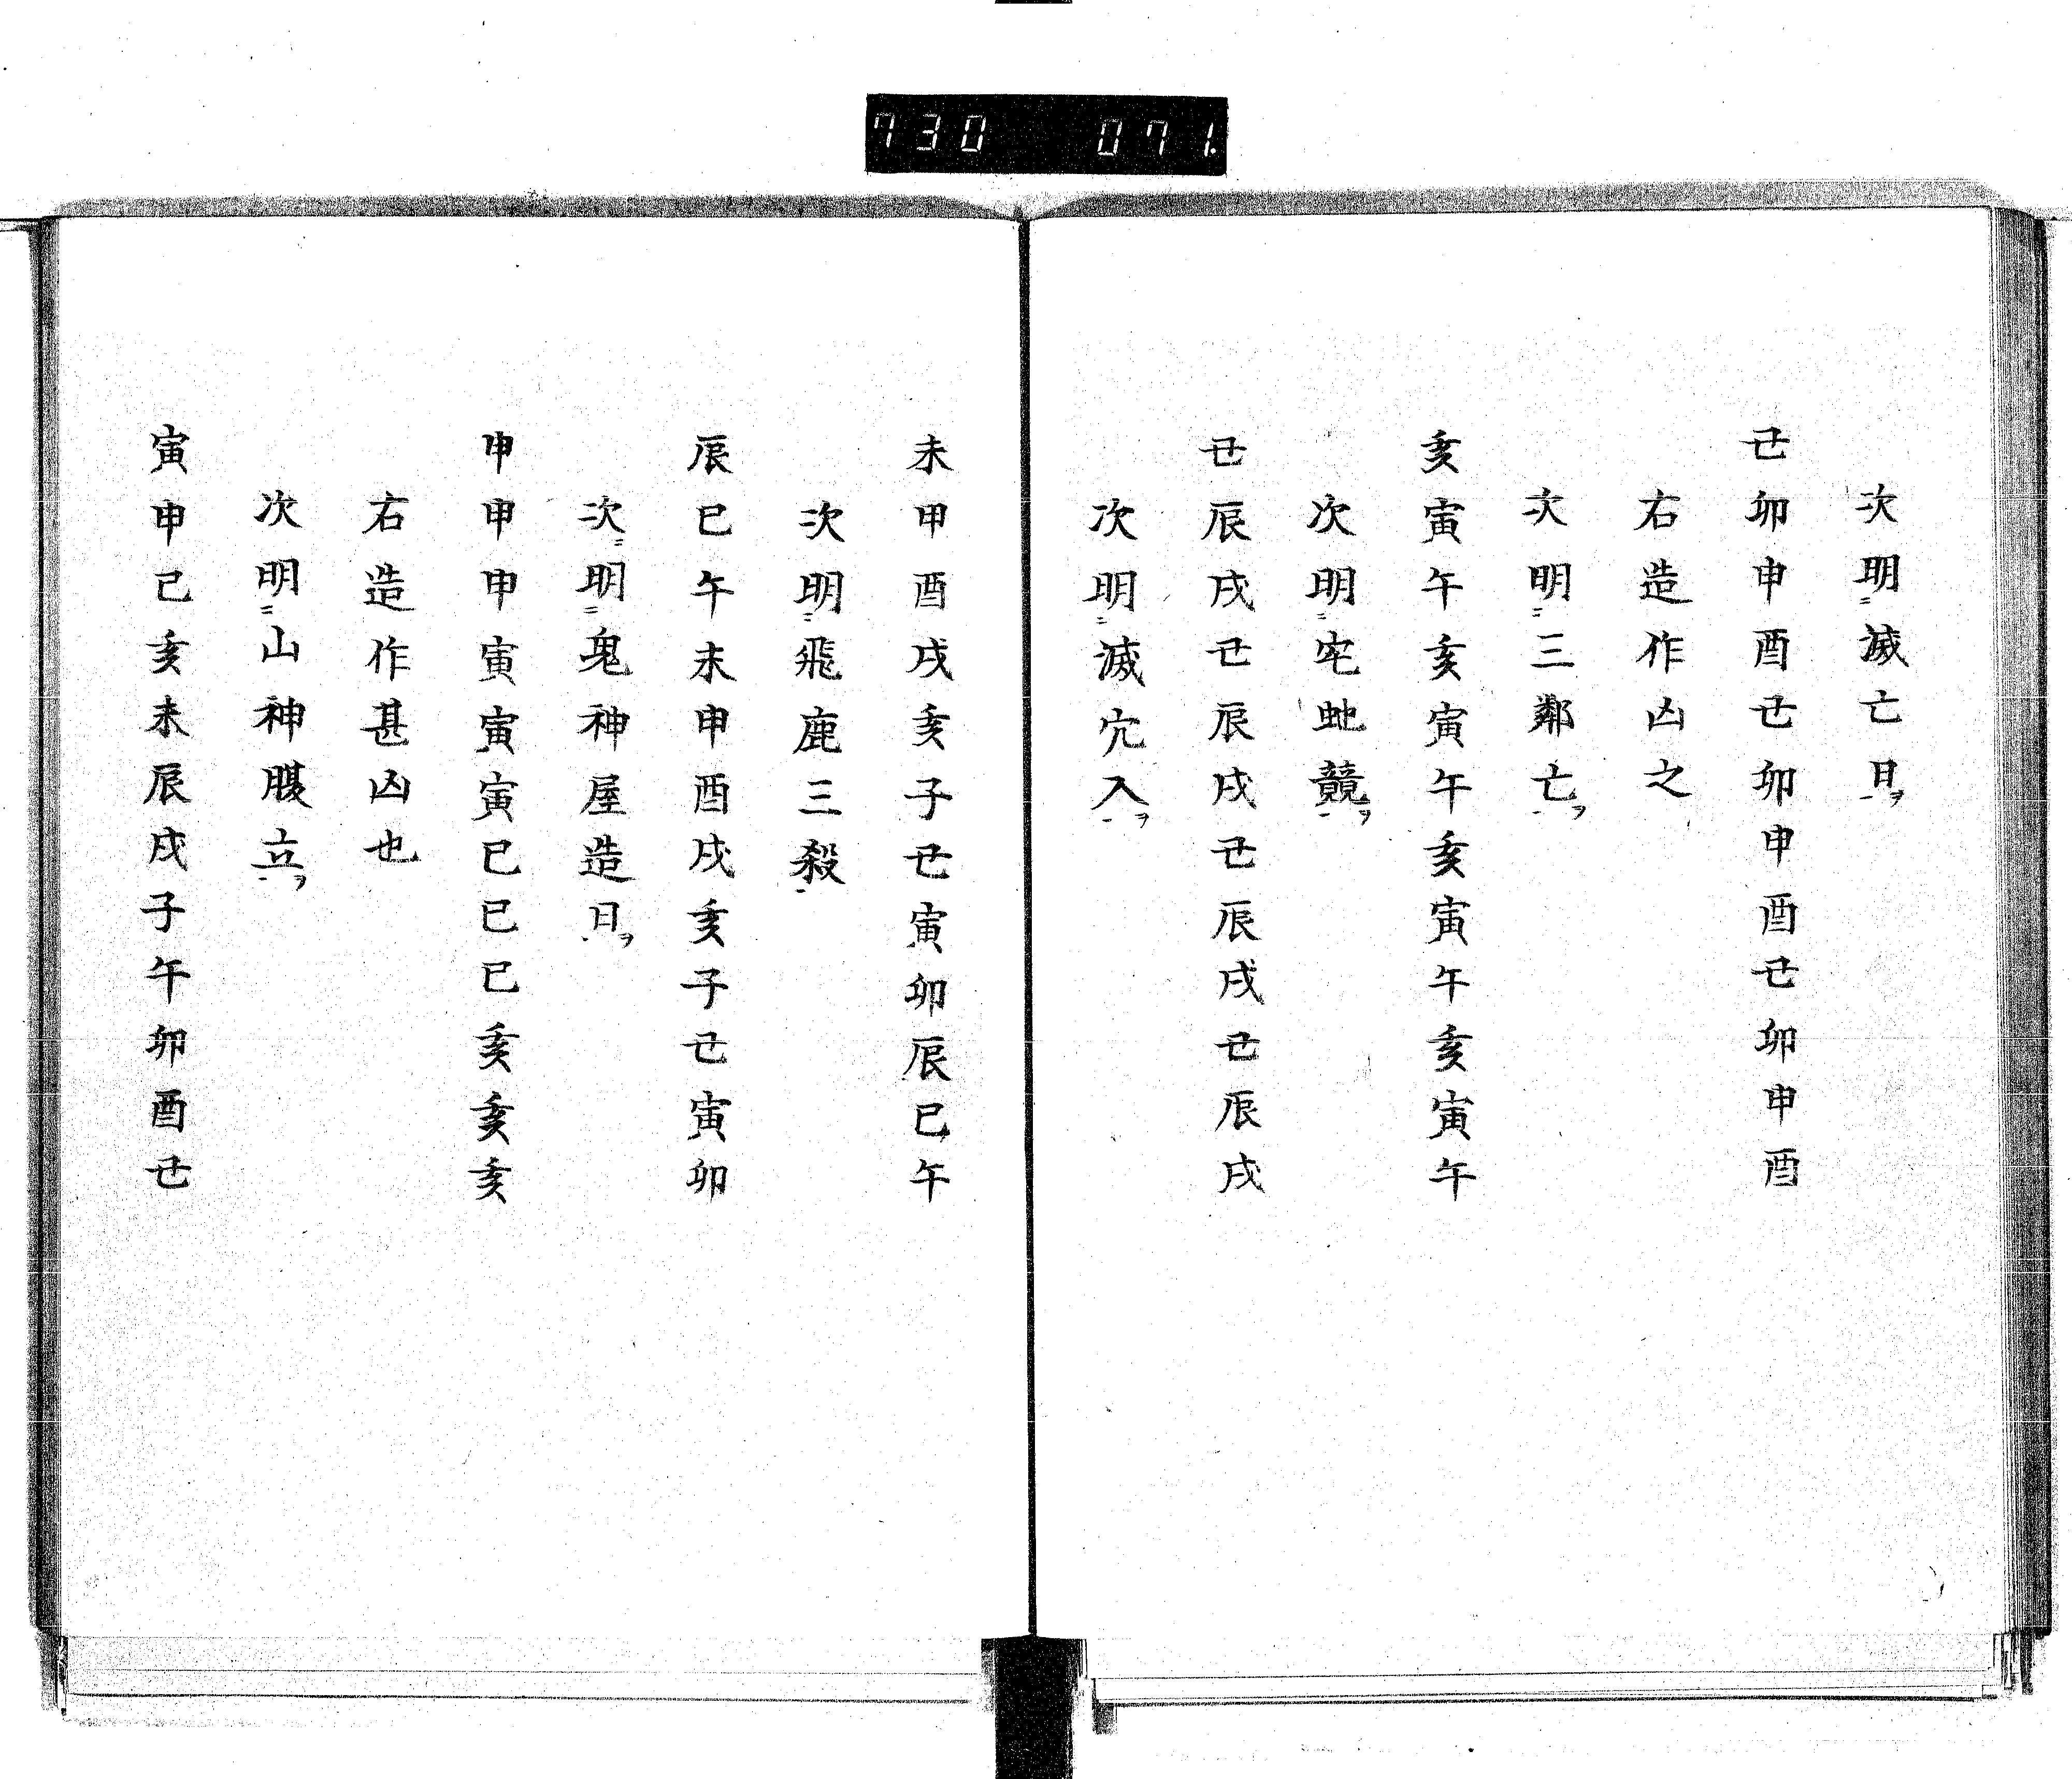 730 071.
次明ニ滅亡日ヲ
丑卯申酉丑卯申酉丑卯申酉
右造作凶之
次明ニ三鄰亡ヲ
亥寅午亥寅午亥寅午亥寅午
次明ニ宅虵競ヲ
丑辰戌丑辰戌丑辰戌丑辰戌
次明ニ滅穴入ヲ
未甲酉戌亥子丑寅卯辰巳午
次明ニ飛鹿三殺
辰巳午未申酉戌亥子丑寅卯
次ニ明ニ鬼神屋造日ヲ
申申申寅寅寅巳巳巳亥亥亥
右造作甚凶也
次明ニ山神腹立ヲ
寅申巳亥未辰戌子午卯酉丑